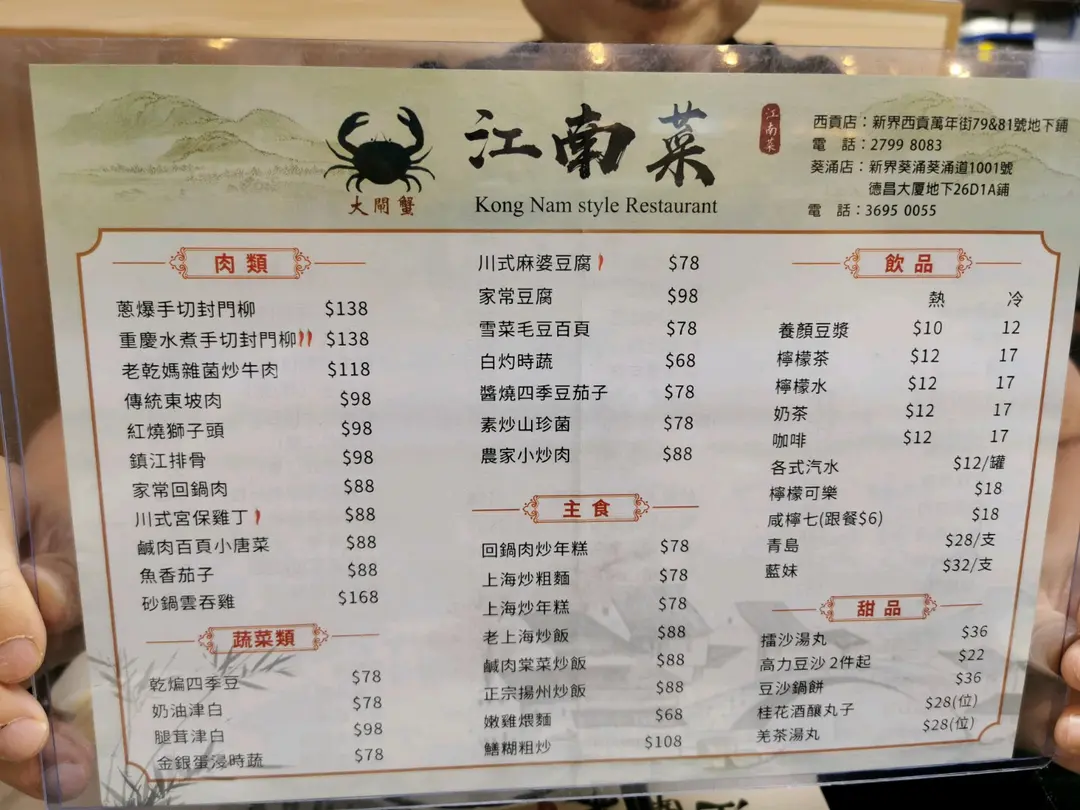 江南菜
大閘蟹
Kong Nam style Restaurant
江南菜
西貢店：新界西貢萬年街79&81號地下鋪
電　話：2799 8083
葵涌店：新界葵涌葵涌道1001號
德昌大厦地下26D1A鋪
電　話：3695 0055
肉類
蔥爆手切封門柳 $138
重慶水煮手切封門柳 $138
老乾媽雜菌炒牛肉 $118
傳統東坡肉 $98
紅燒獅子頭 $98
鎮江排骨 $98
家常回鍋肉 $88
川式宮保雞丁 $88
鹹肉百頁小唐菜 $88
魚香茄子 $88
砂鍋雲吞雞 $168
蔬菜類
乾煸四季豆 $78
奶油津白 $78
腿茸津白 $98
金銀蛋浸時蔬 $78
川式麻婆豆腐 $78
家常豆腐 $98
雪菜毛豆百頁 $78
白灼時蔬 $68
醬燒四季豆茄子 $78
素炒山珍菌 $78
農家小炒肉 $88
主食
回鍋肉炒年糕 $78
上海炒粗麵 $78
上海炒年糕 $78
老上海炒飯 $88
鹹肉棠菜炒飯 $88
正宗揚州炒飯 $88
嫩雞煨麵 $68
鱔糊粗炒 $108
飲品
熱 冷
養顏豆漿 $10 12
檸檬茶 $12 17
檸檬水 $12 17
奶茶 $12 17
咖啡 $12 17
各式汽水 $12/罐
檸檬可樂 $18
咸檸七(跟餐$6) $18
青島 $28/支
藍妹 $32/支
甜品
擂沙湯丸 $36
高力豆沙 2件起 $22
豆沙鍋餅 $36
桂花酒釀丸子 $28(位)
羌茶湯丸 $28(位)